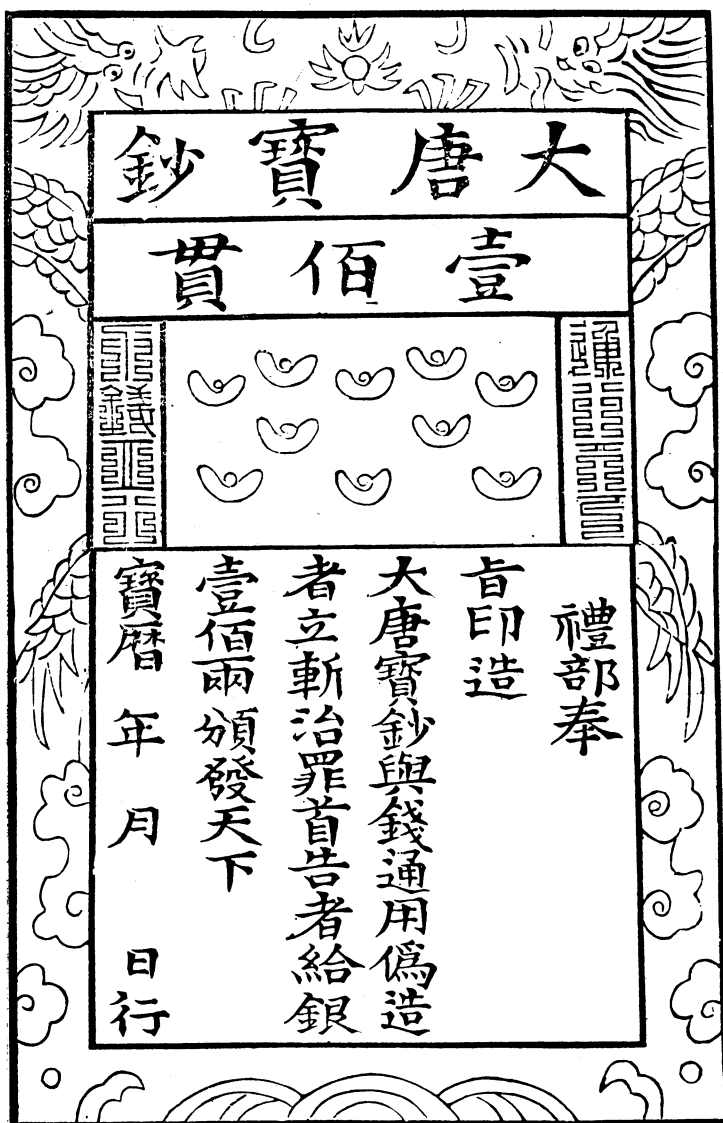 大唐寶鈔
壹佰貫
禮部奉
旨印造
大唐寶鈔與錢通用僞造
者立斬治罪首告者給銀
壹佰兩頒發天下
寶曆 年 月 日行